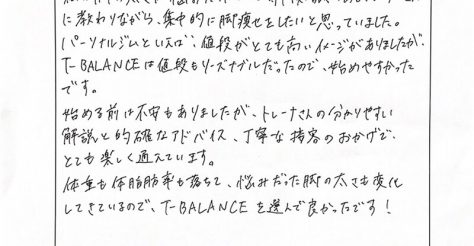 に教わりながら、集中的に脚痩せをしたいと思っていました。
パーソナルジムといえば、値段がとても高いイメージがありましたが、
T-BALANCEは値段もリーズナブルだったので、始めやすかった
です。
始める前は不安もありましたが、トレーナーさんの分かりやすい
解説と的確なアドバイス、丁寧な接客のおかげで、
とても楽しく通えています。
体重も体脂肪率も落ちて、悩みだった脚の太さも変化
してきているので、T-BALANCEを選んで良かったです！